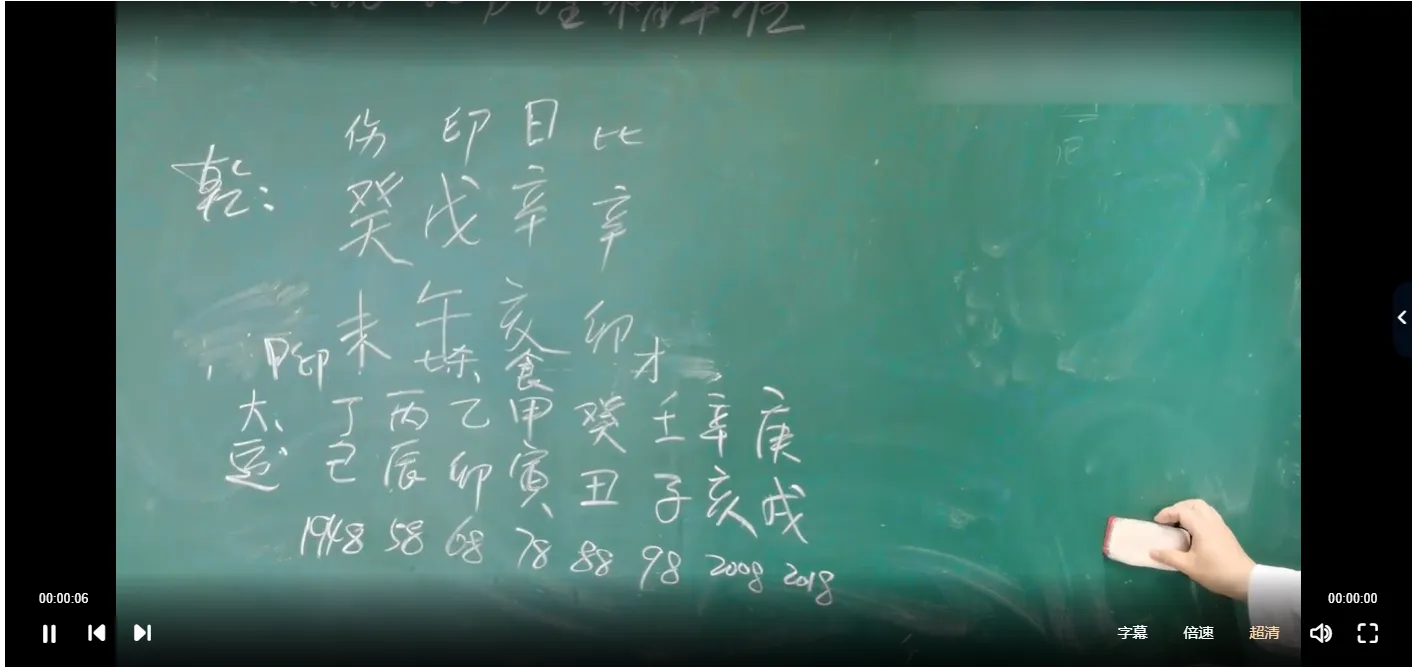 伤 印 日 比
乾: 癸 戊 辛 辛
未 午 亥 卯
印 杀 食 才
大运 丁 丙 乙 甲 癸 壬 辛 庚
巳 辰 卯 寅 丑 子 亥 戌
1948 58 68 78 88 98 2008 2018
00:00:06
00:00:00
字幕 倍速 超清